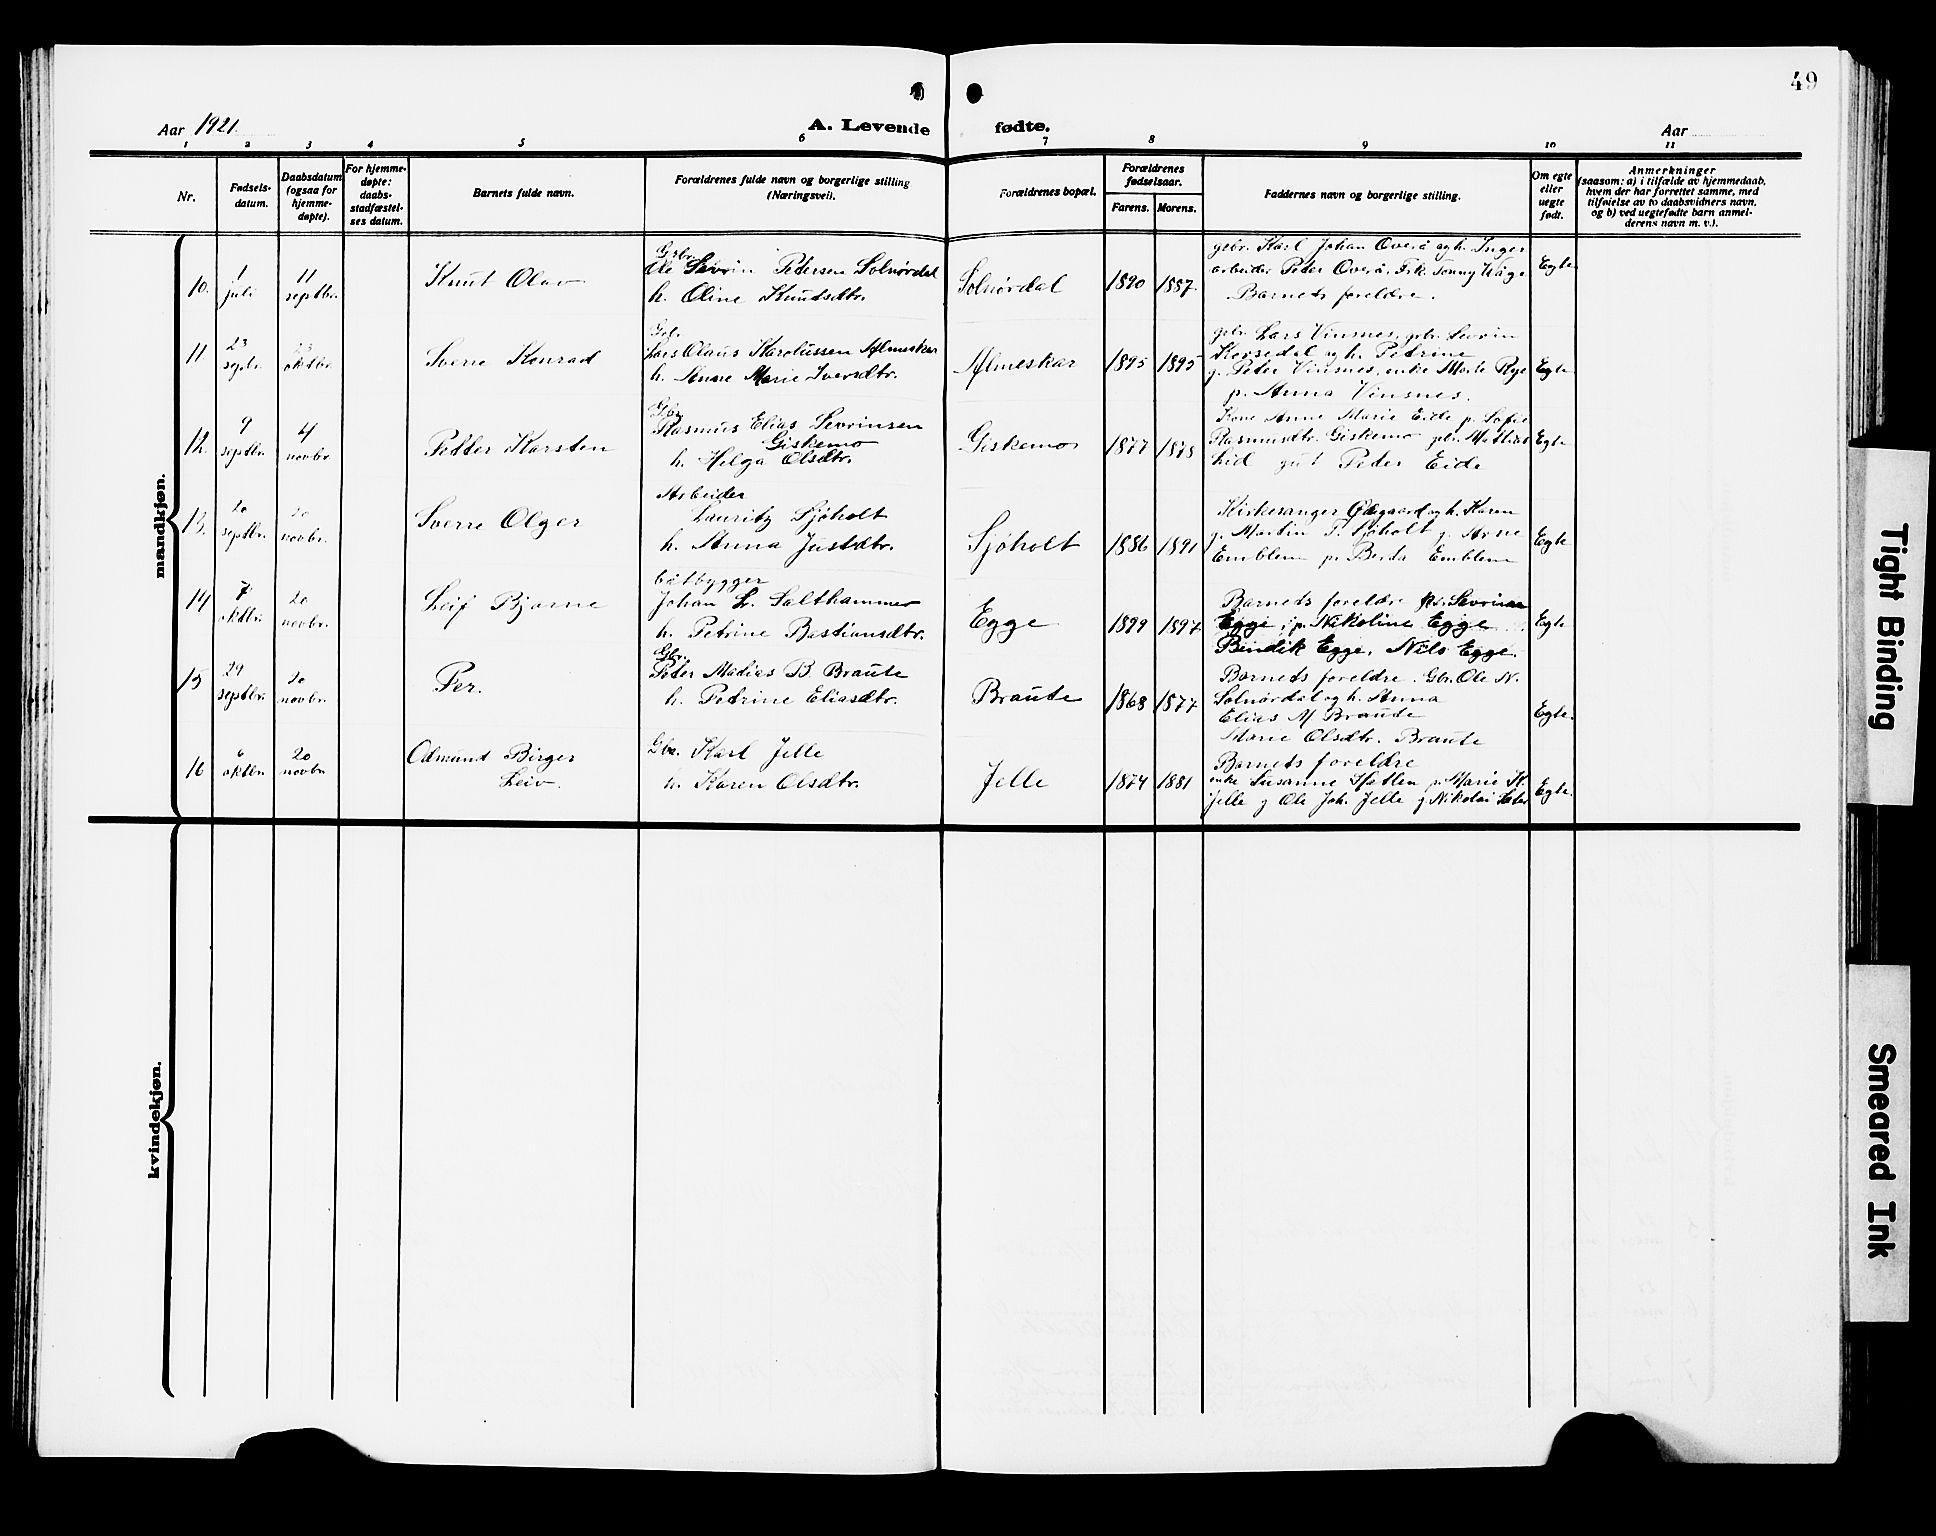 49
Aar 1921. A. Levende fødte. Aar
1 2 3 4 5 6 7 8 9 10 11
Nr.
Fødsels-
datum.
Daabsdatum
(ogsaa for
hjemme-
døpte).
For hjemme-
døpte:
daabs-
stadfæstel-
ses datum.
Barnets fulde navn.
Forældrenes fulde navn og borgerlige stilling
(Næringsvei).
Forældrenes bopæl.
Forældrenes
fødselsaar.
Farens. Morens.
Faddernes navn og borgerlige stilling.
Om egte
eller
uegte
født.
Anmerkninger
(saasom: a) i tilfælde av hjemmedaab,
hvem der har forrettet samme, med
tilføielse av to daabsvidners navn,
og b) ved uegtefødte barn anmel-
derens navn m. v.).
mandkjøn.
10.
1
juli
11
septbr.
Knut Olav
Grbr.
Ole Sevrin Petersen Solnørdal
h. Oline Knutsdtr.
Solnørdal
1890 1887.
grbr. Karl Johan Overå og h. Inger
arbeider Peter Overå. Frk. Jonny Våge
Barnets foreldre.
Egte
11
23
septr.
23
oktbr.
Sverre Konrad
Gbr.
Lars Olaus Karolussen Almeskar
h. Anne Marie Iversdtr.
Almeskar
1895 1895
gbr. Lars Vinsnes, gbr. Sevrin
Korsedal og h. Petrine
g. Peter Vinsnes, enke Marte Rye
p. Anna Vinsnes.
Egte
12.
9
septbr.
4
novbr.
Petter Karsten
Gbr.
Rasmus Elias Sevrinsen
Giskemo
h. Helga Olsdtr.
Giskemo
1877 1878
Kone Anne Marie Eide p. Sofie
Rasmusdtr. Giskemo gbr. Mathias
Lid gut Peter Eide
Egte
13.
20
septbr.
20
novbr.
Sverre Olger
Arbeider
Lauritz Sjøholt
h. Anna Justdtr.
Sjøholt
1886 1891
Kirkesanger Ødegaard og h. Karen
g. Martin P. Sjøholt g. Arne
Emblem p. Berda Emblem
Egte
14
7
oktbr.
20
novbr.
Leif Bjarne
båtbygger
Johan L. Salthammer
h. Petrine Bastiansdtr.
Egge
1899 1897
Barnets foreldre gbr. Sevrinan
Egge, p. Nikoline Egge
Bendik Egge, Nils Egge.
Egte
15
29
septbr.
20
novbr.
Per.
Gbr.
Peter Madias B. Braute
h. Petrine Eliasdtr.
Braute
1868 1877
Barnets foreldre. Gbr. Ole N.
Solnørdal og h. Anna
Elias M Braude
Marie Olsdtr. Braute
Egte.
16
6
oktbr.
20
novbr
Odmund Birger
Leiv.
Gbr. Karl Jelle
h. Karen Olsdtr.
Jelle
1874 1881
Barnets foreldre
enke Susanne Hatlen p. Marie K.
Jelle g Ole Joh. Jelle g Nikolai
Egte.
kvindekjøn.
Tight Binding
Smeared Ink